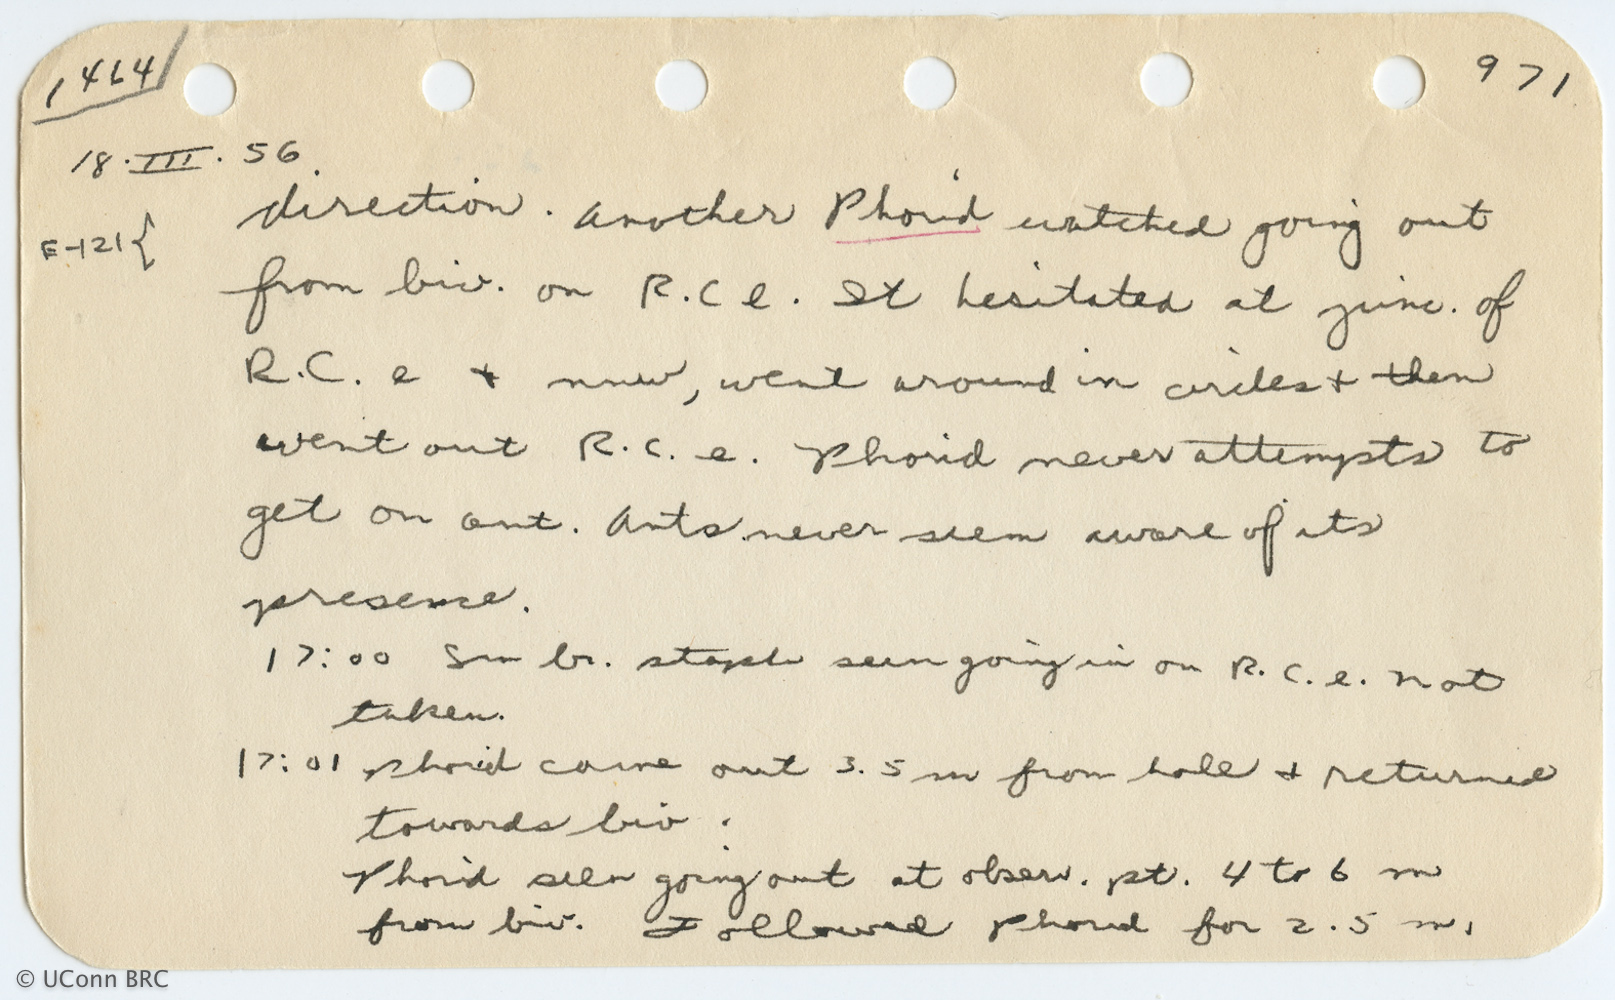 1464
971
18.III.56.
direction. Another Phorid watched going out
E-121{
from biv. on R.C e. It hesitated at junc. of
R.C. e + nnw, went around in circles + then
went out R.C. e. Phorid never attempts to
get on ant. Ants never seem aware of its
presence.
17:00 Sm br. staph seen going in on R.C.e. not
taken.
17:01 Phorid came out 3.5 m from hole + returned
towards biv.
Phorid seen going out at observ. pt. 4 to 6 m
from biv. Followed phorid for 2.5 m.
© UConn BRC